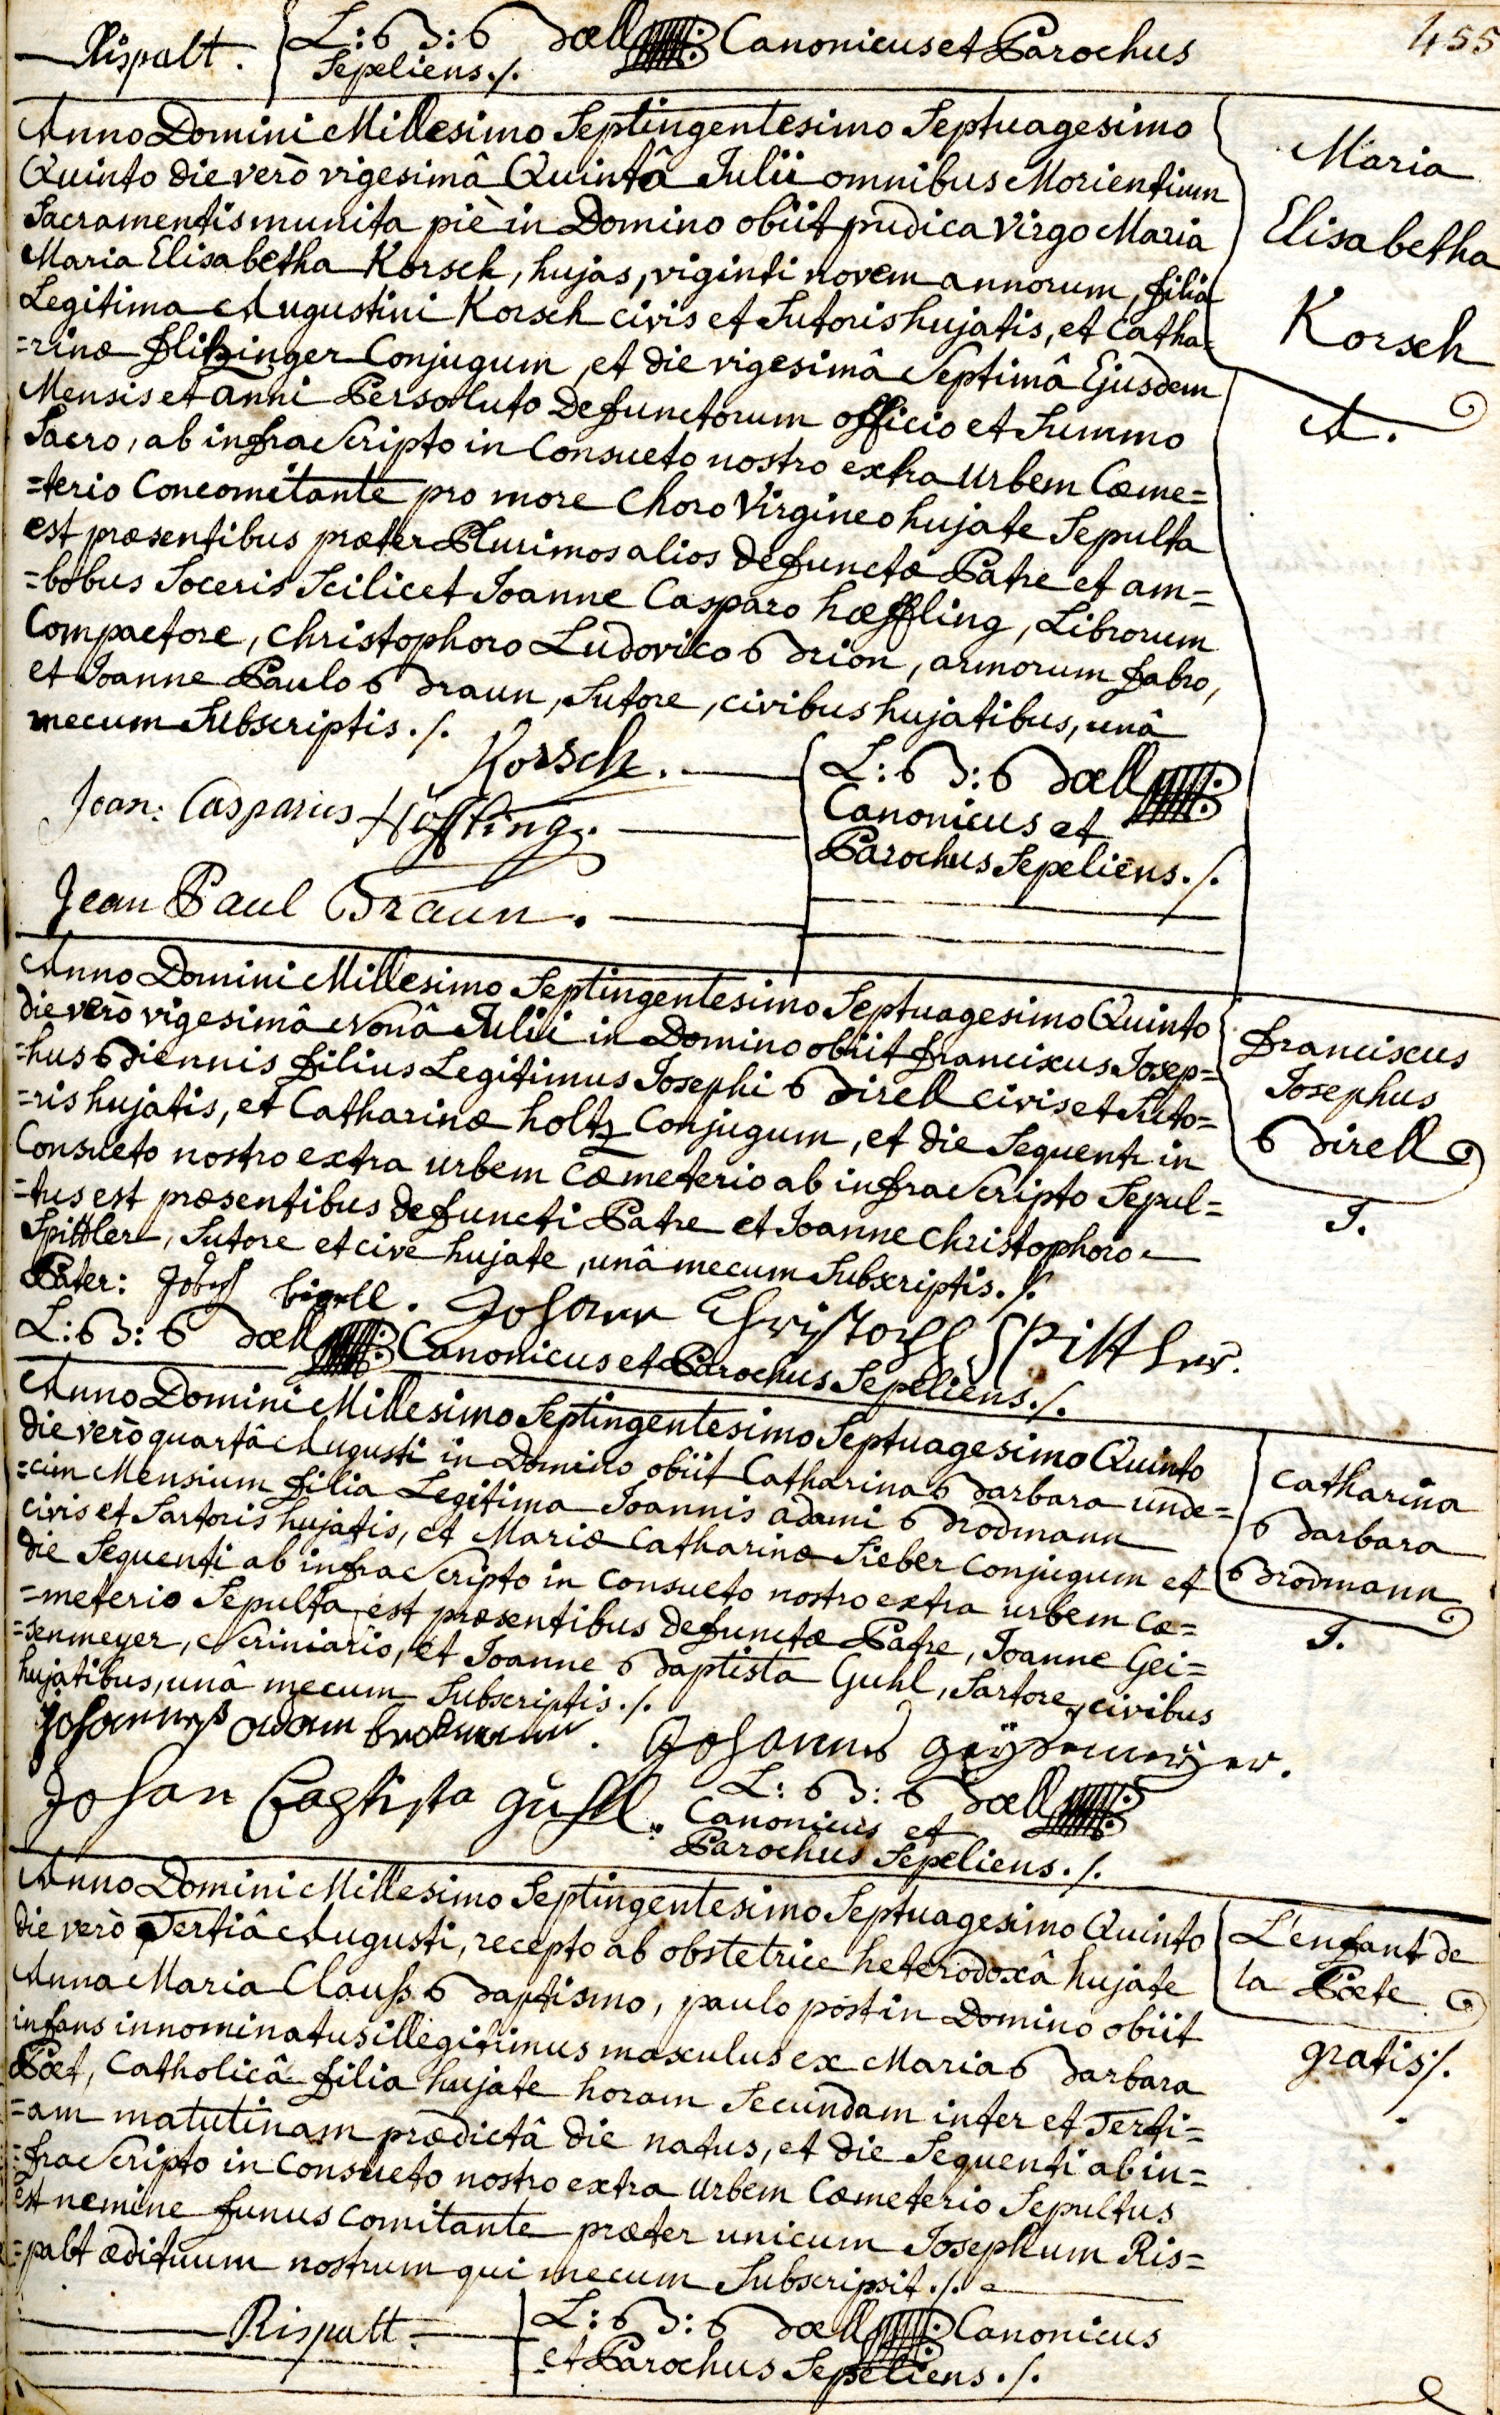 455
Rispalt. L: B: Boell Canonicus et Parochus
Sepeliens ./.
Anno Domini Millesimo Septingentesimo Septuagesimo
Quinto die verò vigesimâ Quintâ Julii omnibus Morientium
Sacramentis munita piè in Domino obiit pudica virgo Maria
Maria Elisabetha Korsch, hujas, viginti novem annorum, filia
Legitima Augustini Korsch civis et Sutoris hujatis, et Catha=
=rinæ flitzinger Conjugum, et die vigesimâ Septimâ Ejusdem
Mensis et anni Persoluto Defunctorum officio et Summo
Sacro, ab infra Scripto in Consueto nostro extra urbem Cœme=
=terio Concomitante pro more Choro Virgineo hujate Sepulta
est præsentibus præter Plurimos alios defunctæ Patre et am=
=bobus Soceris Scilicet Joanne Casparo hæffling, Librorum
Compactore, Christophoro Ludovico Brion, armorum fabro,
et Joanne Paulo Braun, Sutore, civibus hujatibus, unâ
mecum Subscriptis ./.
Maria
Elisabetha
Korsch
A.
Korsch.
Joan: Casparius Höffling.
Jean Paul Braun.
L: B: Boell
Canonicus et
Parochus Sepeliens ./.
Anno Domini Millesimo Septingentesimo Septuagesimo Quinto
die verò vigesimâ Nonâ Julii in Domino obiit franciscus Josep=
=hus Biennis filius Legitimus Josephi Birell civis et Suto=
=ris hujatis, et Catharinæ holtz Conjugum, et die Sequenti in
Consueto nostro extra urbem Cœmeterio ab infra Scripto Sepul=
=tus est præsentibus defuncti Patre et Joanne Christophoro
Spittler, Sutore et cive hujate, unâ mecum Subscriptis ./.
franciscus
Josephus
Birell
J.
Pater: Josef birell. Johann Christoph Spittler.
L: B: Boell Canonicus et Parochus Sepeliens ./.
Anno Domini Millesimo Septingentesimo Septuagesimo Quinto
die verò quartâ Augusti in Domino obiit Catharina Barbara unde=
=cim Mensium filia Legitima Joannis adami Brodmann
civis et Sartoris hujatis, et Mariæ Catharinæ Sieber Conjugum et
die Sequenti ab infra Scripto in Consueto nostro extra urbem cœ=
=meterio Sepulta est præsentibus defunctæ Patre, Joanne Gei=
=senmeyer, Scriniario, et Joanne Baptista Guhl, Sartore, civibus
hujatibus, unâ mecum Subscriptis ./.
Catharina
Barbara
Brodmann
J.
Johannes adam brodmann.
Johan Baptista guhl.
L: B: Boell
Canonicus et
Parochus Sepeliens ./.
Anno Domini Millesimo Septingentesimo Septuagesimo Quinto
die verò Tertiâ Augusti, recepto ab obstetrice heterodoxâ hujate
Anna Maria Clauss Baptismo, paulo post in Domino obiit
infans innominatus illegitimus masculus ex Maria Barbara
Pöet, Catholicâ filia hujate horam Secundam inter et Terti=
=am matutinam prædictâ die natus, et die Sequenti ab in=
=fra Scripto in Consueto nostro extra urbem Cœmeterio Sepultus
est nemine funus comitante præter unicum Josephum Ris=
=palt ædituum nostrum qui mecum Subscripsit ./.
L'enfant de
la Pöete
gratis ./.
Rispalt.
L: B: Boell Canonicus
et Parochus Sepeliens ./.